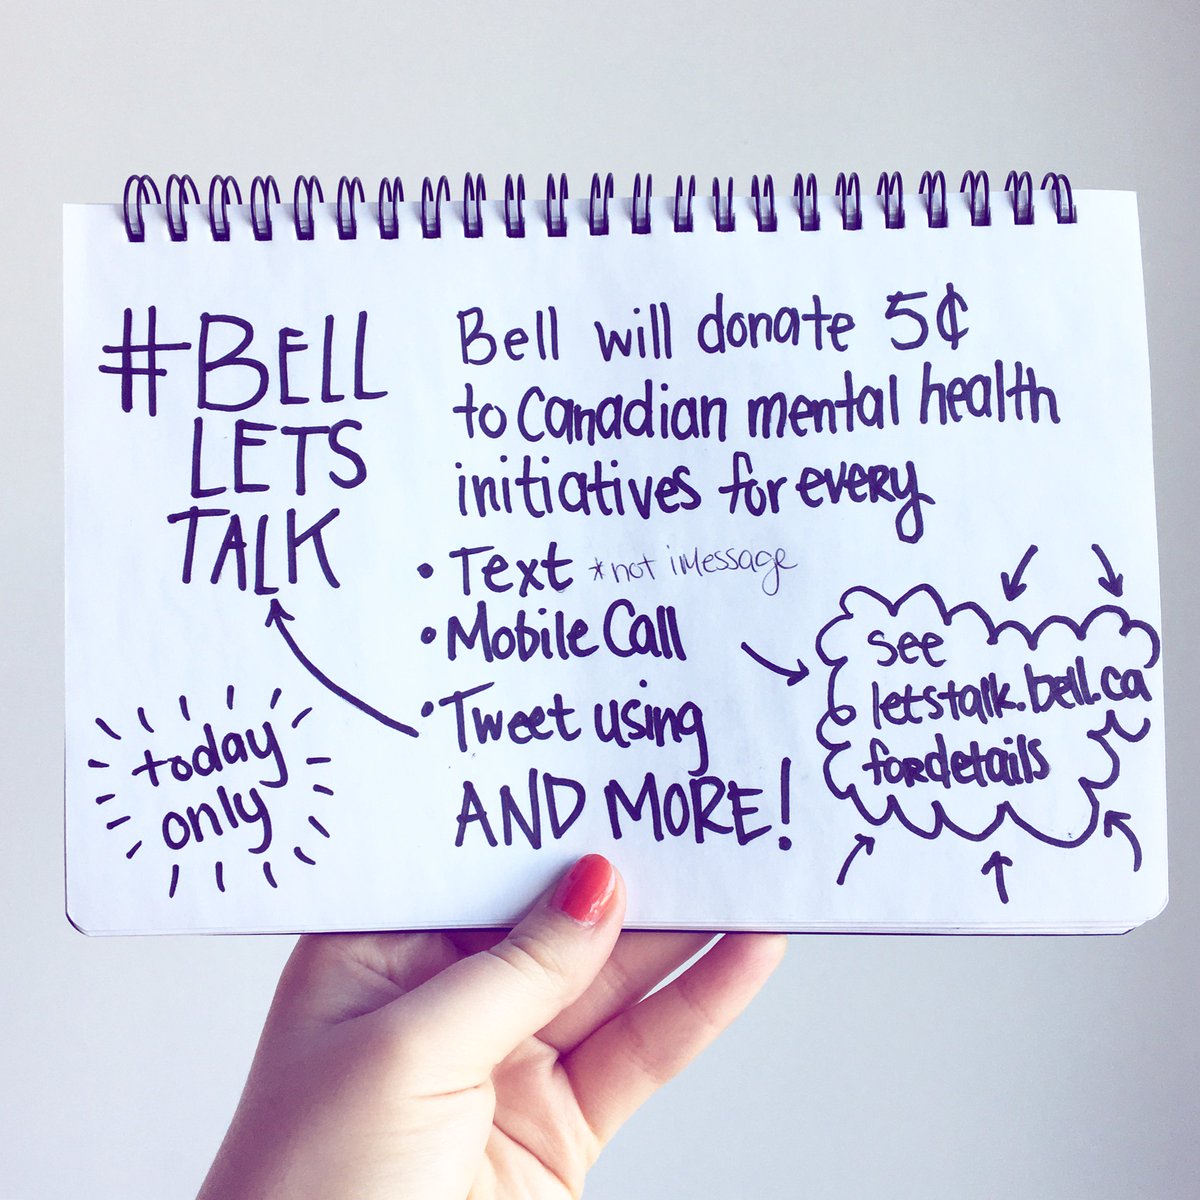 #BELL
LETS
TALK
today
only
Bell will donate 5¢
to Canadian mental health
initiatives for every
• Text *not iMessage
• Mobile Call
• Tweet using
AND MORE!
see
letstalk.bell.ca
for details